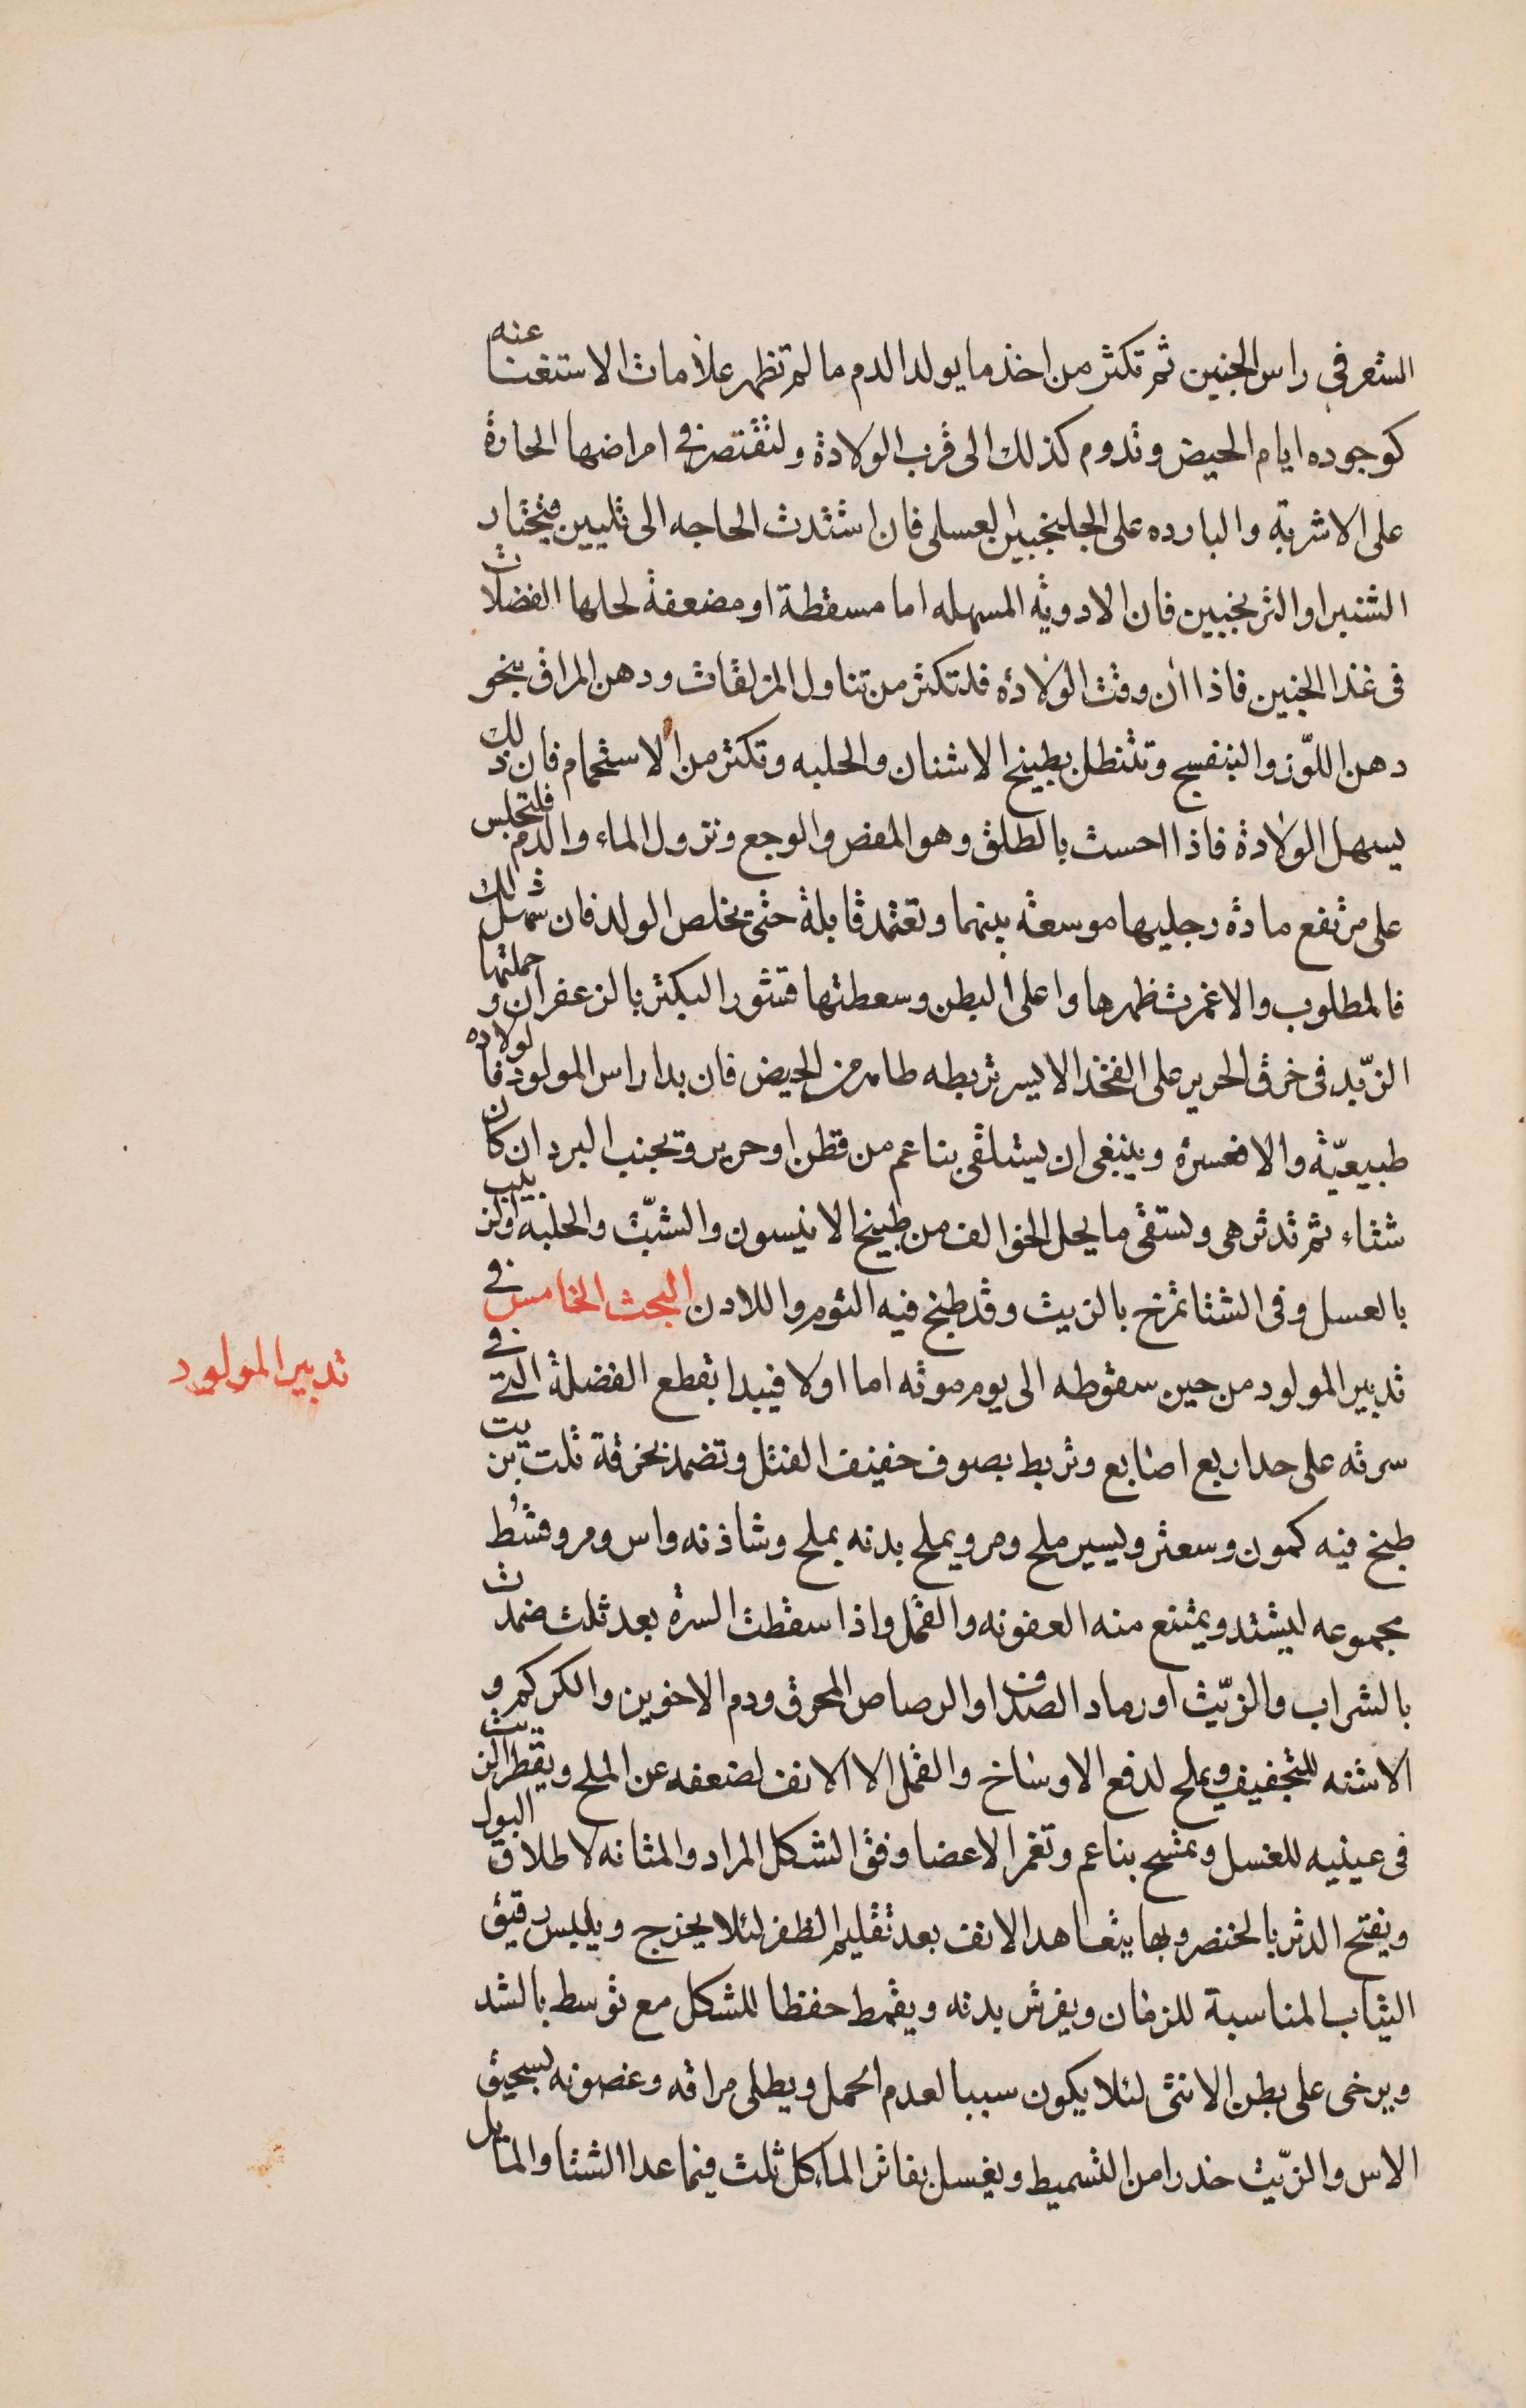 الشعر فى راس الجنين ثم تكثر من اخذ ما يولد الدم ما لم تظهر علامات الاستغنا عنه
كوجوده ايام الحيض وتدوم كذلك الى قرب الولادة ولتقتصر فى امراضها الحارة
على الاشربة والبارده على الجلنجبين العسلى فان اشتدت الحاجه الى تليين فبخيار
الشنبر او الترنجبين فان الادوية المسهله اما مسقطة او مضعفة لحلها الفضلات
فى غذا الجنين فاذا ان وقت الولادة فلتكثر من تناول المزلقات ودهن المراق بنحو
دهن اللوز والبنفسج وتتنطل بطبيخ الاشنان والحلبه وتكثر من الاستحمام فان ذلك
يسهل الولادة فاذا احست بالطلق وهو المغص والوجع ونزول الماء والدم فلتجلس
على مرتفع مادة رجليها موسعة بينهما وتعتمد قابلة حتى يخلص الولد فان سهل ذلك
فالمطلوب والا غمزت ظهرها واعلى البطن وسعطتها قشور البكتر بالزعفران وحملتها
الزبد فى خرق الحرير على الفخذ الايسر تربطه طامر من الحيض فان بدا راس المولود فالولاده
طبيعية والا فعسرة وينبغى ان يتلقى بناعم من قطن او حرير وتجنب البرد ان كان
شتاء ثم تدثر هى وتسقى ما يحل الخوالف من طبيخ الانيسون والشبت والحلبه او الزبيب
بالعسل وفى الشتا تمرخ بالزيت وقد طبخ فيه الثوم واللادن البحث الخامس فى
تدبير المولود
تدبير المولود من حين سقوطه الى يوم موته اما اولا فيبدا بقطع الفضلة التى فى
سرته على حد اربع اصابع وتربط بصوف خفيف الفتل وتضمد بخرقة ثلت بزيت
طبخ فيه كمون وسعتر ويسير ملح ومر ويملح بدنه بملح وشاذنه واس ومر وقسط
مجموعه ليشتد ويمتنع منه العفونه والقمل واذا سقطت السرة بعد ثلث ضمدت
بالشراب والزيت او رماد الصدف او الرصاص المحرق ودم الاخوين والكركم و
الاشنه للتجفيف ويملح لدفع الاوساخ والقمل الا الانف لضعفه عن الملح ويقطر الزيت
فى عينيه للغسل ويمسح بناعم وتغمز الاعضا وفق الشكل المراد والمثانه لاطلاق البول
ويفتح الدبر بالخنصر وبها يتعاهد الانف بعد تقليم الظفر لئلا يخرج ويلبس رقيق
الثياب المناسبة للزمان ويفرش بدنه ويقمط حفظا للشكل مع توسط بالشد
ويرخى على بطن الانثى لئلا يكون سببا لعدم الحمل ويطلى مراقه وغصونه بسحيق
الاس والزيت حذرا من التسميط ويغسل بفاتر الماء كل ثلث فيما عدا الشتا والمايل